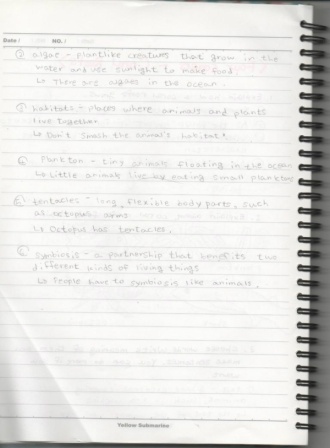 Date / NO. /
② algae - plantlike creatures that grow in the
water and use sunlight to make food.
↳ There are algaes in the ocean.
③ habitats - places where animals and plants
live together
↳ Don't smash the animal's habitat.
④ Plankton - tiny animals floating in the ocean
↳ Little animals live by eating small planktons
⑤ tentacles - long, flexible body parts, such
as octopus arms
↳ Octopus has tentacles.
⑥ symbiosis - a partnership that benefits two
different kinds of living things
↳ People have to symbiosis like animals.
Yellow Submarine